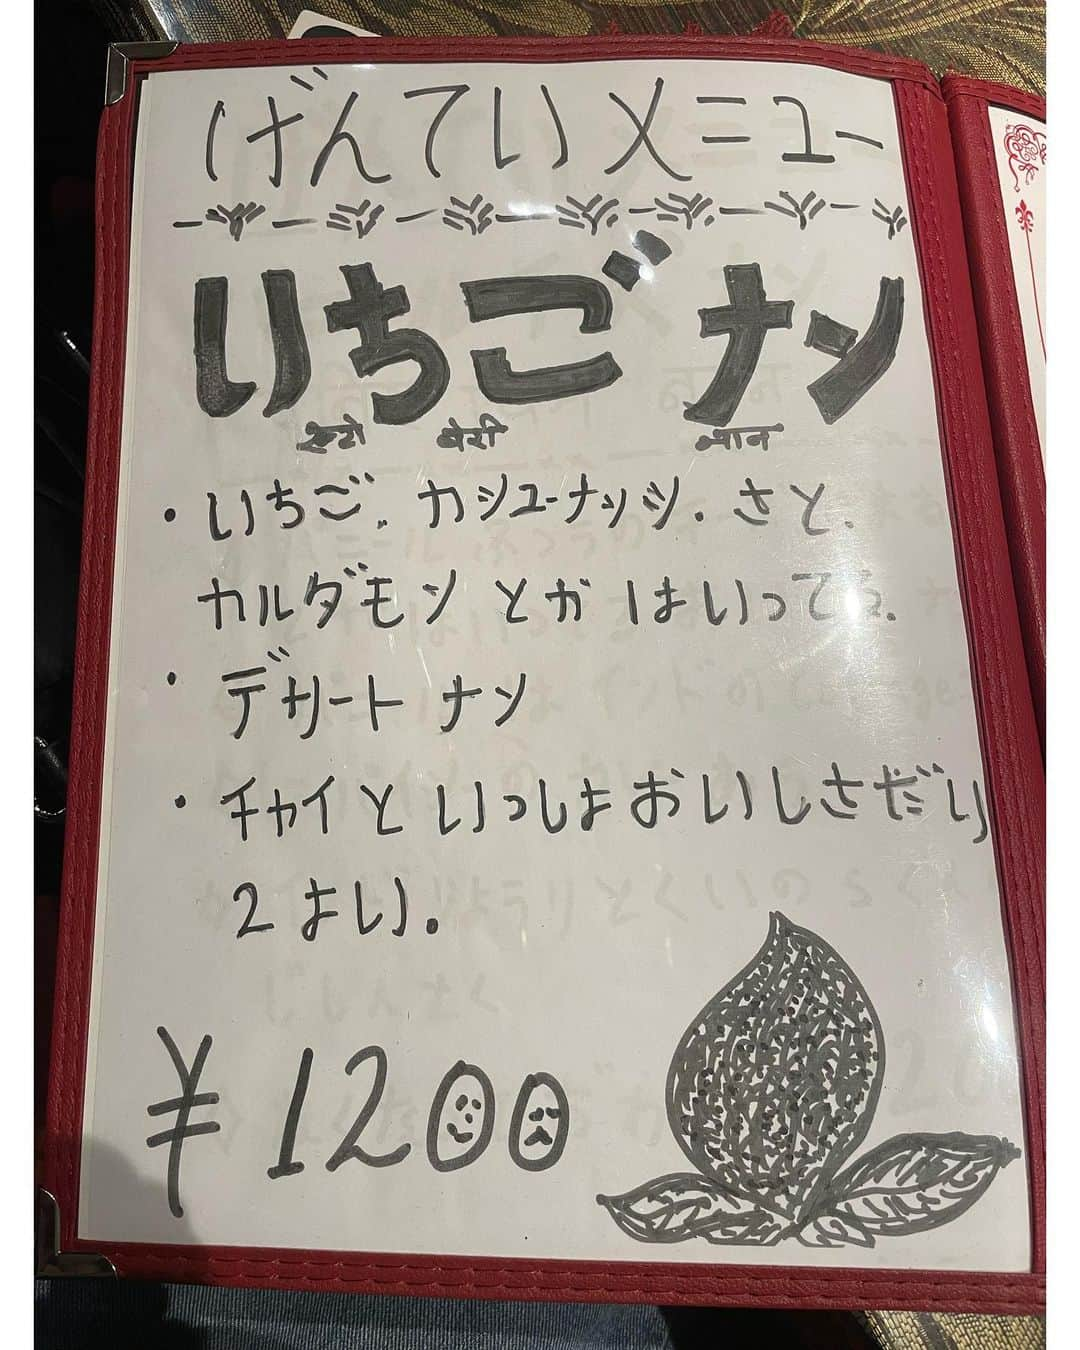 げんていメニュー
いちごナン
・いちご、カシューナッツ.さと、
カルダモン とか はいってる.
・デザート ナン
・チャイ と いっしょ おいしさだい
2 ばい.
¥1200